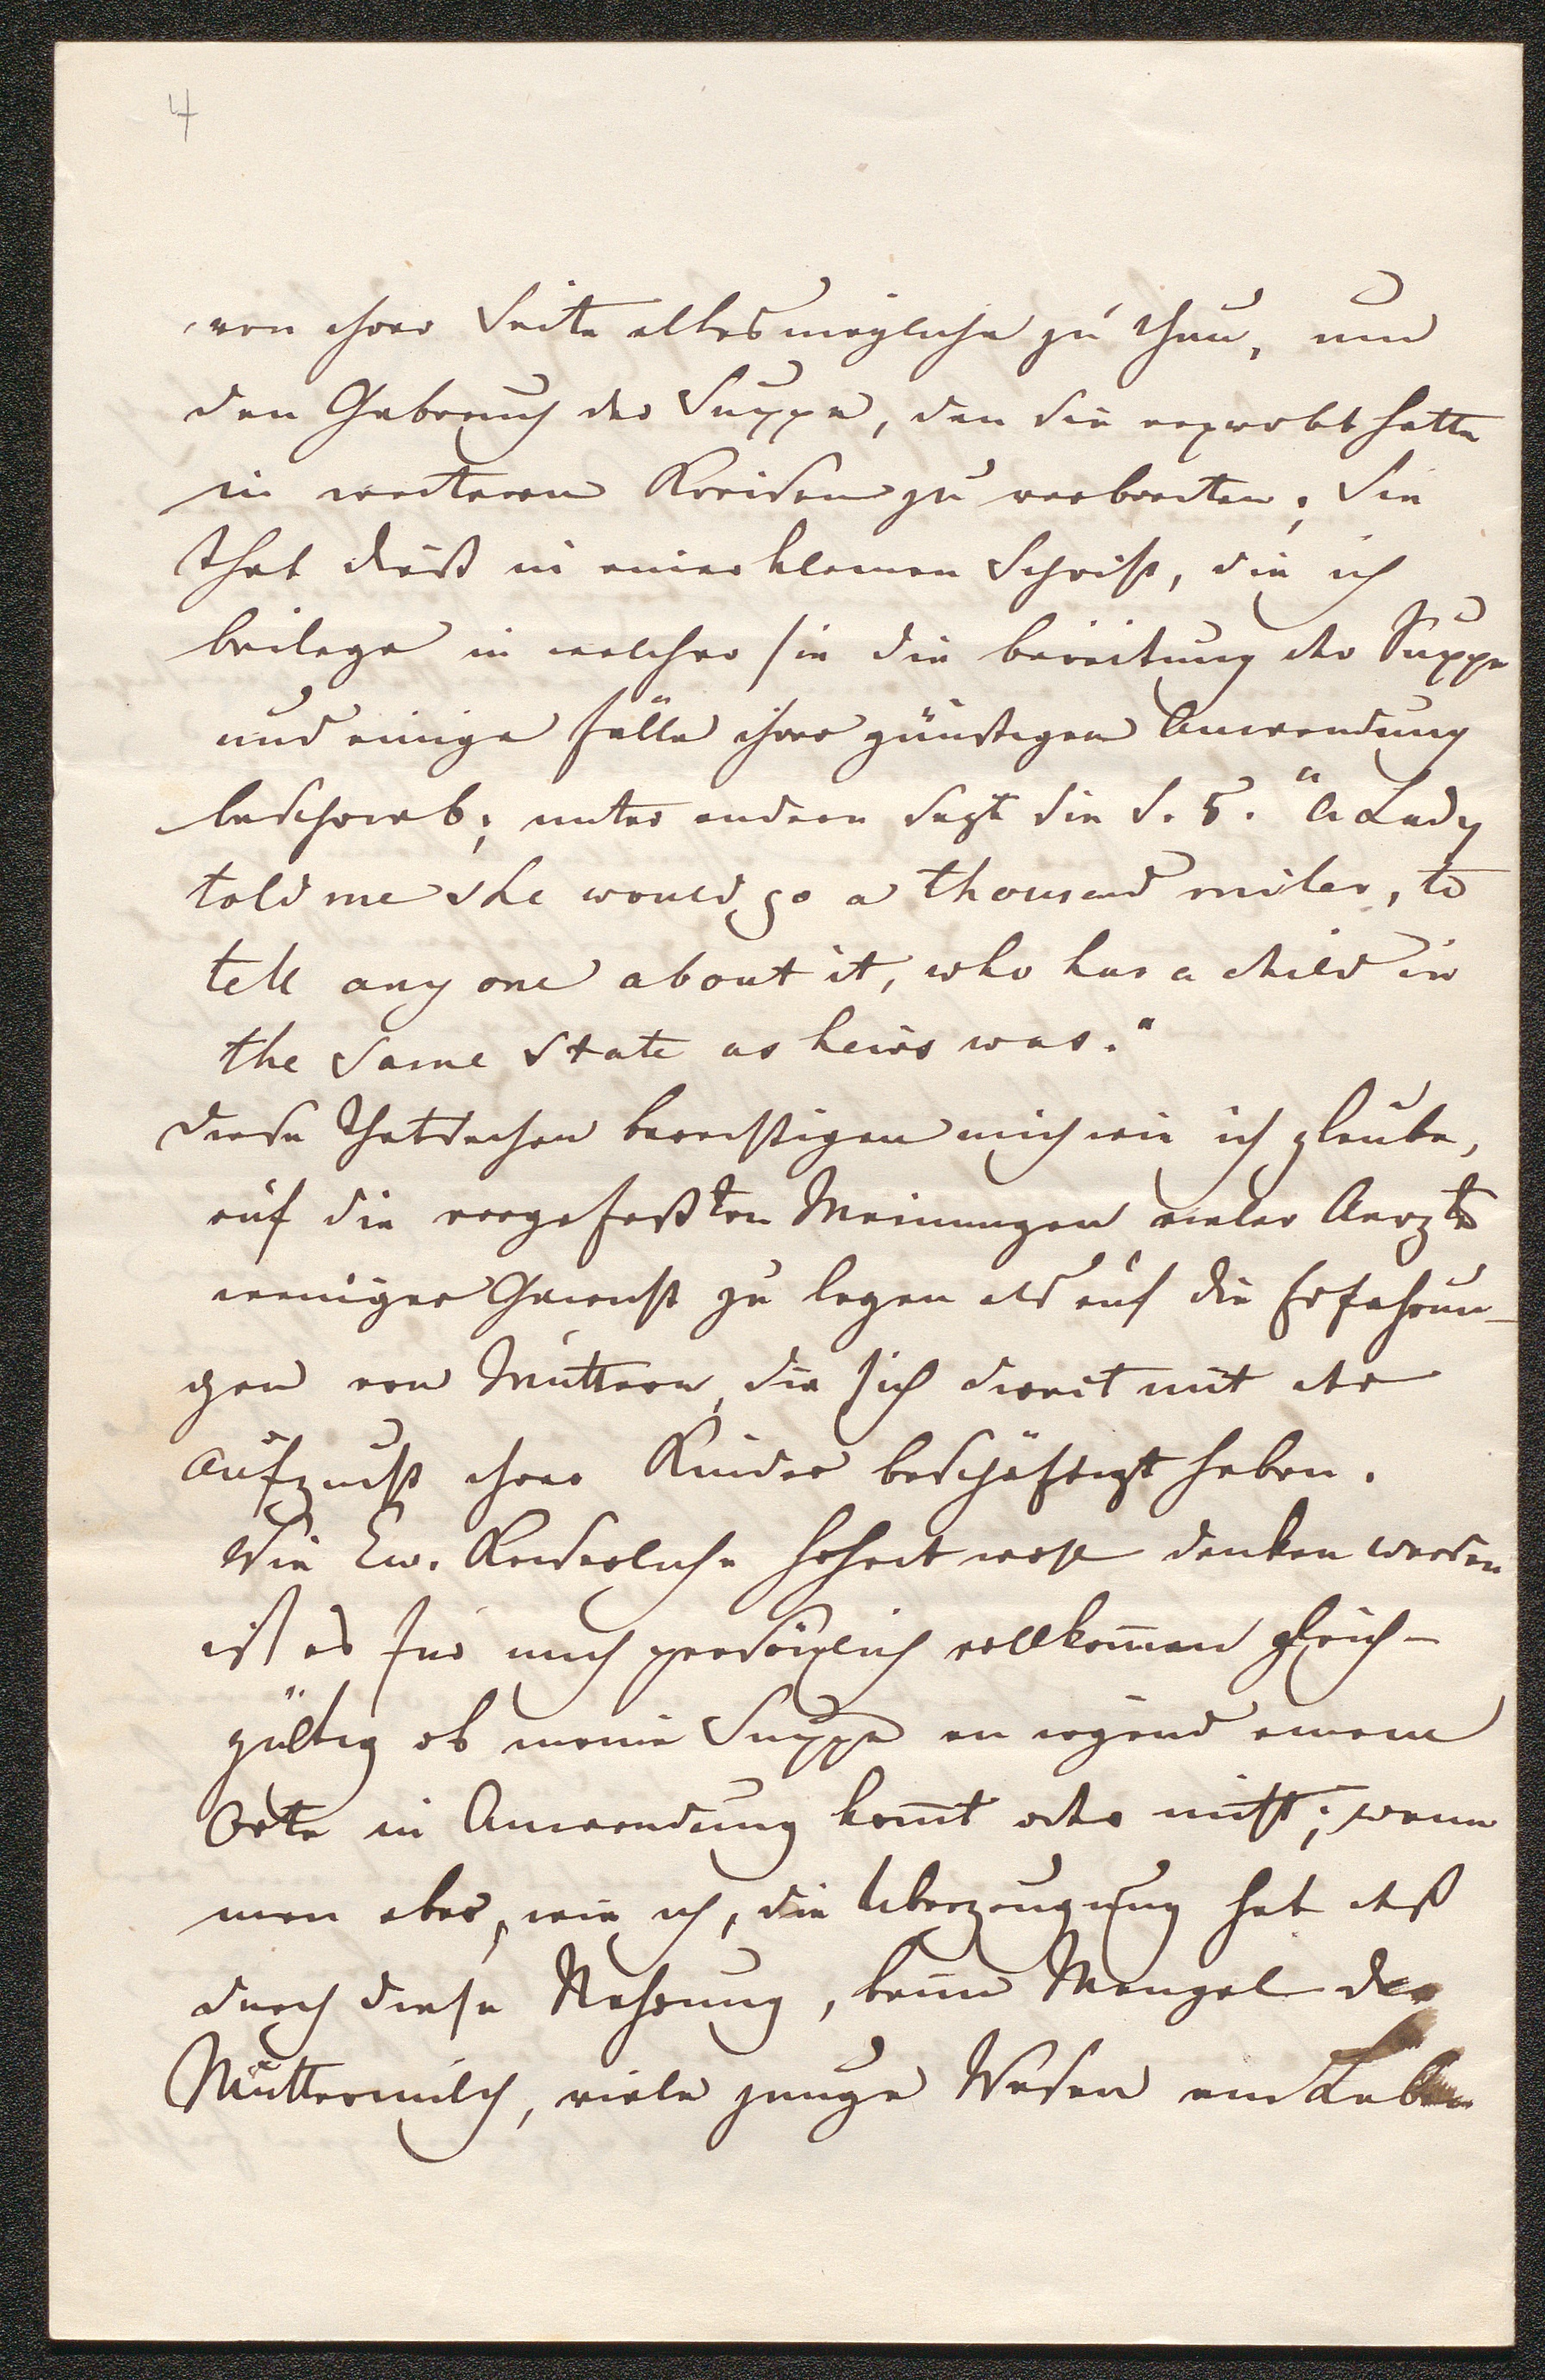 4
von ihrer Seite alles mögliche zu thun, um
den Gebrauch der Suppe, den sie erprobt hatte
in weiteren Kreisen zu verbreiten; Sie
that dieß in einer kleinen Schrift, die ich
beilege in welcher sie die bereitung der Suppe
und einige Fälle ihrer günstigen Anwendung
beschreib; unter andern sagt sie S. 5. "A Lady
told me she would go a thousend miles, to
tell any one about it, who has a child in
the same state as heirs was."
diese Thatsachen berechtigen mich wie ich glaube,
auf die vorgefaßten Meinungen vieler Aerzte
weniger Gewicht zu legen als auf die Erfahrun-
gen von Müttern, die sich direct mit der
Aufzucht ihrer Kinder beschäftigt haben.
Wie Ew. Kaiserliche Hoheit wohl denken werden
ist es für mich persönlich vollkom̅en gleich-
gültig ob meine Suppe an irgend einem
Orte in Anwendung kom̅t oder nicht; wenn
man aber, wie ich, die Uberzeugung hat daß
durch diese Nahrung, beim Mangel der
Muttermilch, viele junge Wesen am Leben